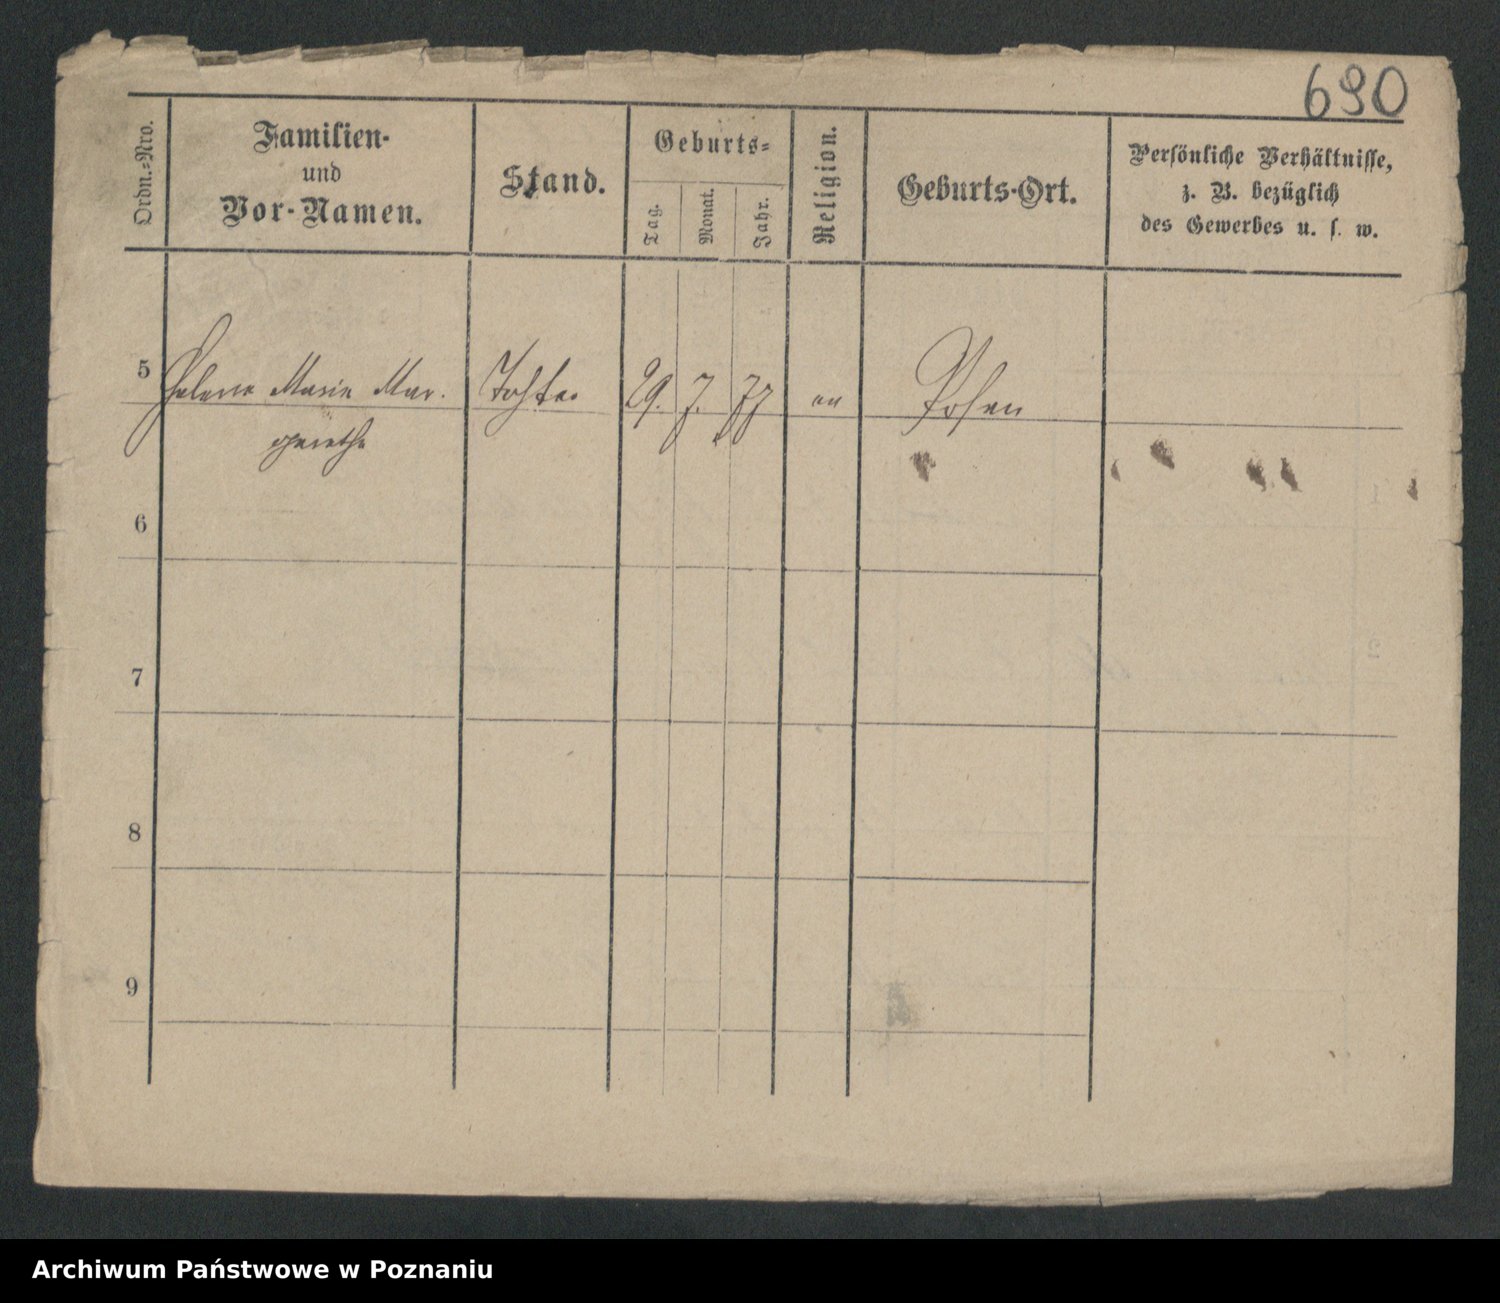 690
Ordn.-Nro.
Familien-
und
Vor-Namen.
Stand.
Geburts-
Tag.
Monat.
Jahr.
Religion.
Geburts-Ort.
Persönliche Verhältnisse,
z. B. bezüglich
des Gewerbes u. s. w.
5 Helene Marie Mar. Tochter 29. 7. 77 ev Posen
garethe
6
7
8
9
Archiwum Państwowe w Poznaniu